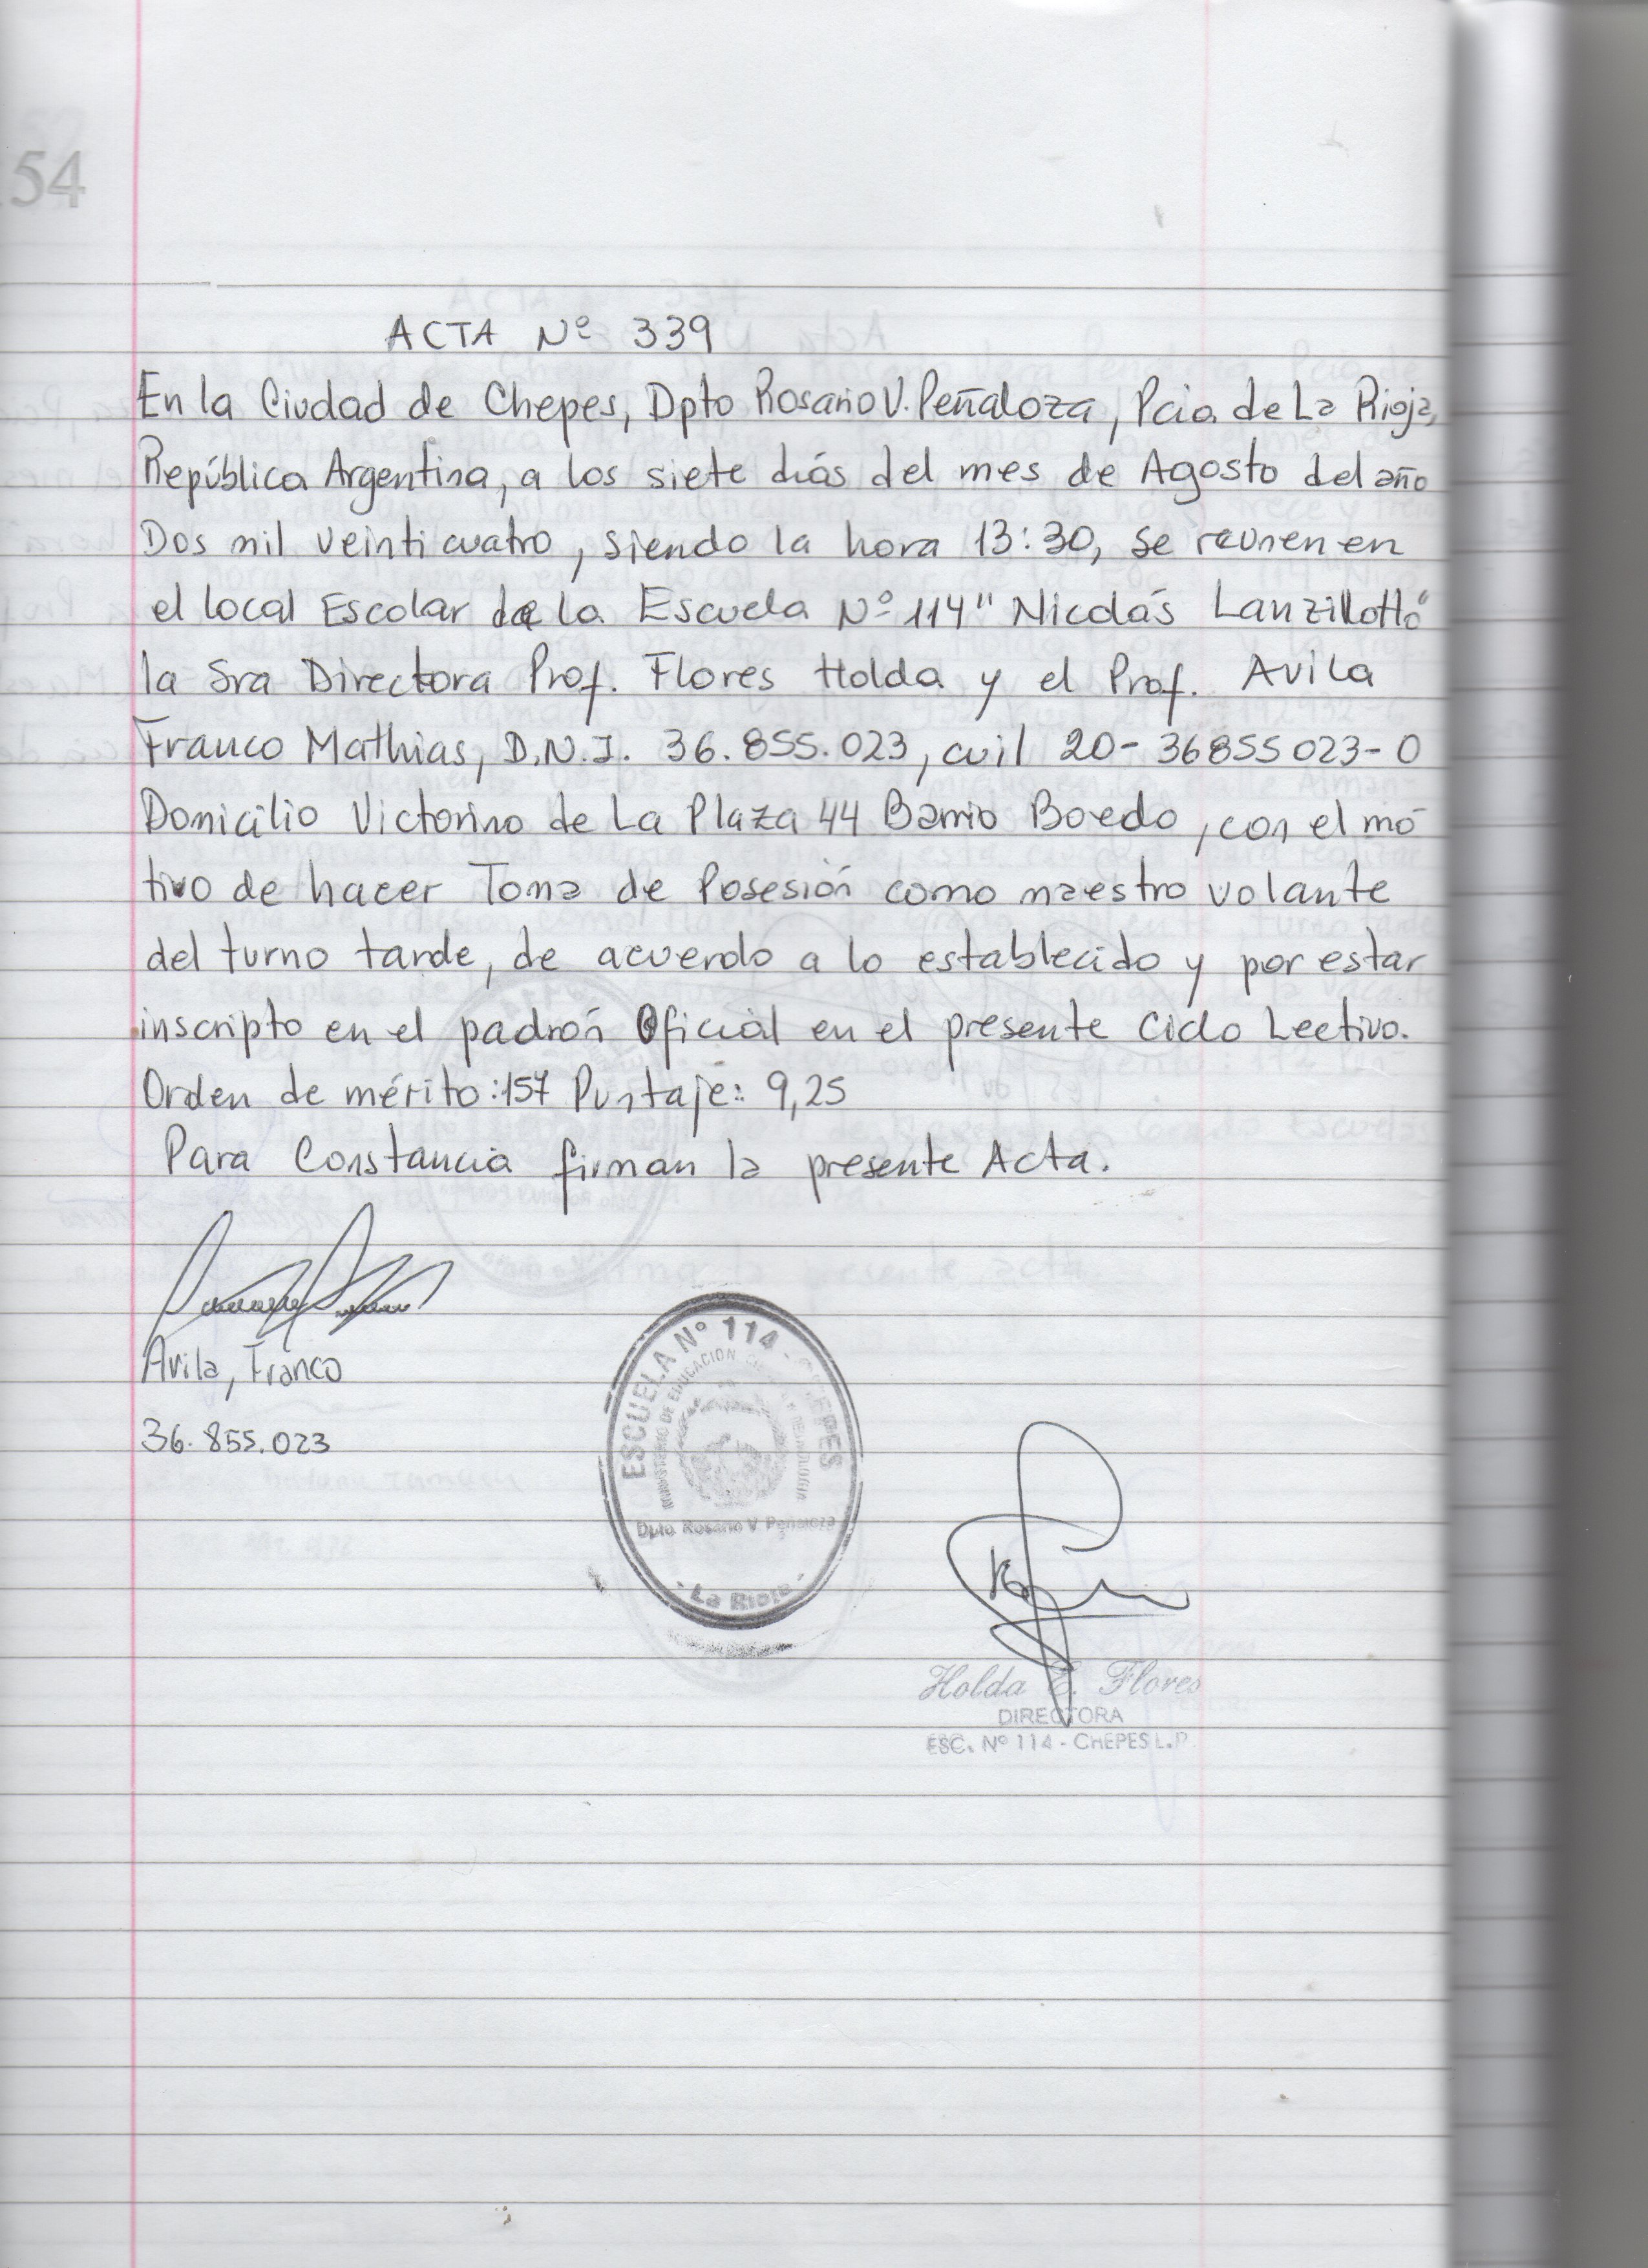 54
ACTA Nº 339
En la Ciudad de Chepes, Dpto Rosario V. Peñaloza, Pcia. de La Rioja,
República Argentina, a los siete días del mes de Agosto del año
Dos mil veinticuatro, siendo la hora 13:30, se reunen en
el local Escolar de la Escuela Nº 114 " Nicolás Lanzillotto"
la Sra Directora Prof. Flores Holda y el Prof. Avila
Franco Mathias, D.N.I. 36.855.023, cuil 20-36855023-0
Domicilio Victorino de La Plaza 44 Barrio Boedo, con el mo
tivo de hacer Toma de Posesión como maestro volante
del turno tarde, de acuerdo a lo establecido y por estar
inscripto en el padrón Oficial en el presente Ciclo Lectivo.
Orden de mérito: 157 Puntaje: 9,25
Para Constancia firman la presente Acta.
Avila, Franco
36.855.023
ESCUELA Nº 114 - CHEPES
MINISTERIO DE EDUCACION
Dpto. Rosario V Peñaloza
- La Rioja -
Holda E. Flores
DIRECTORA
ESC. Nº 114 - CHEPES L.R.